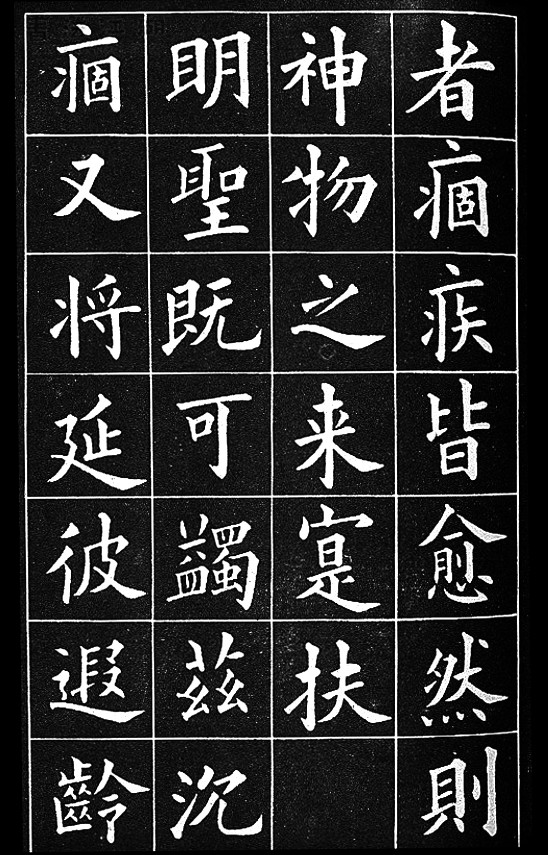 者痼疾皆愈然則
神物之来寔扶
明聖既可蠲茲沉
痼又将延彼遐齡